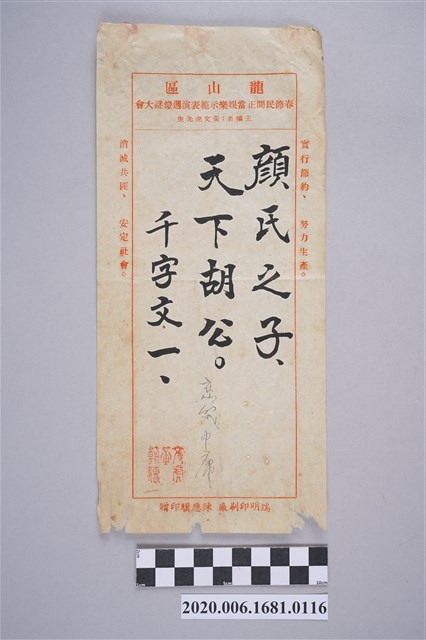 龍山區
春節民間正當娛樂示範表演週燈謎大會
文虎先生
實行節約、努力生產。
顏氏之子、
天下胡公。
千字文一、
消滅共匪、安定社會。
明印刷廠 陳應印贈
2020.006.1681.0116